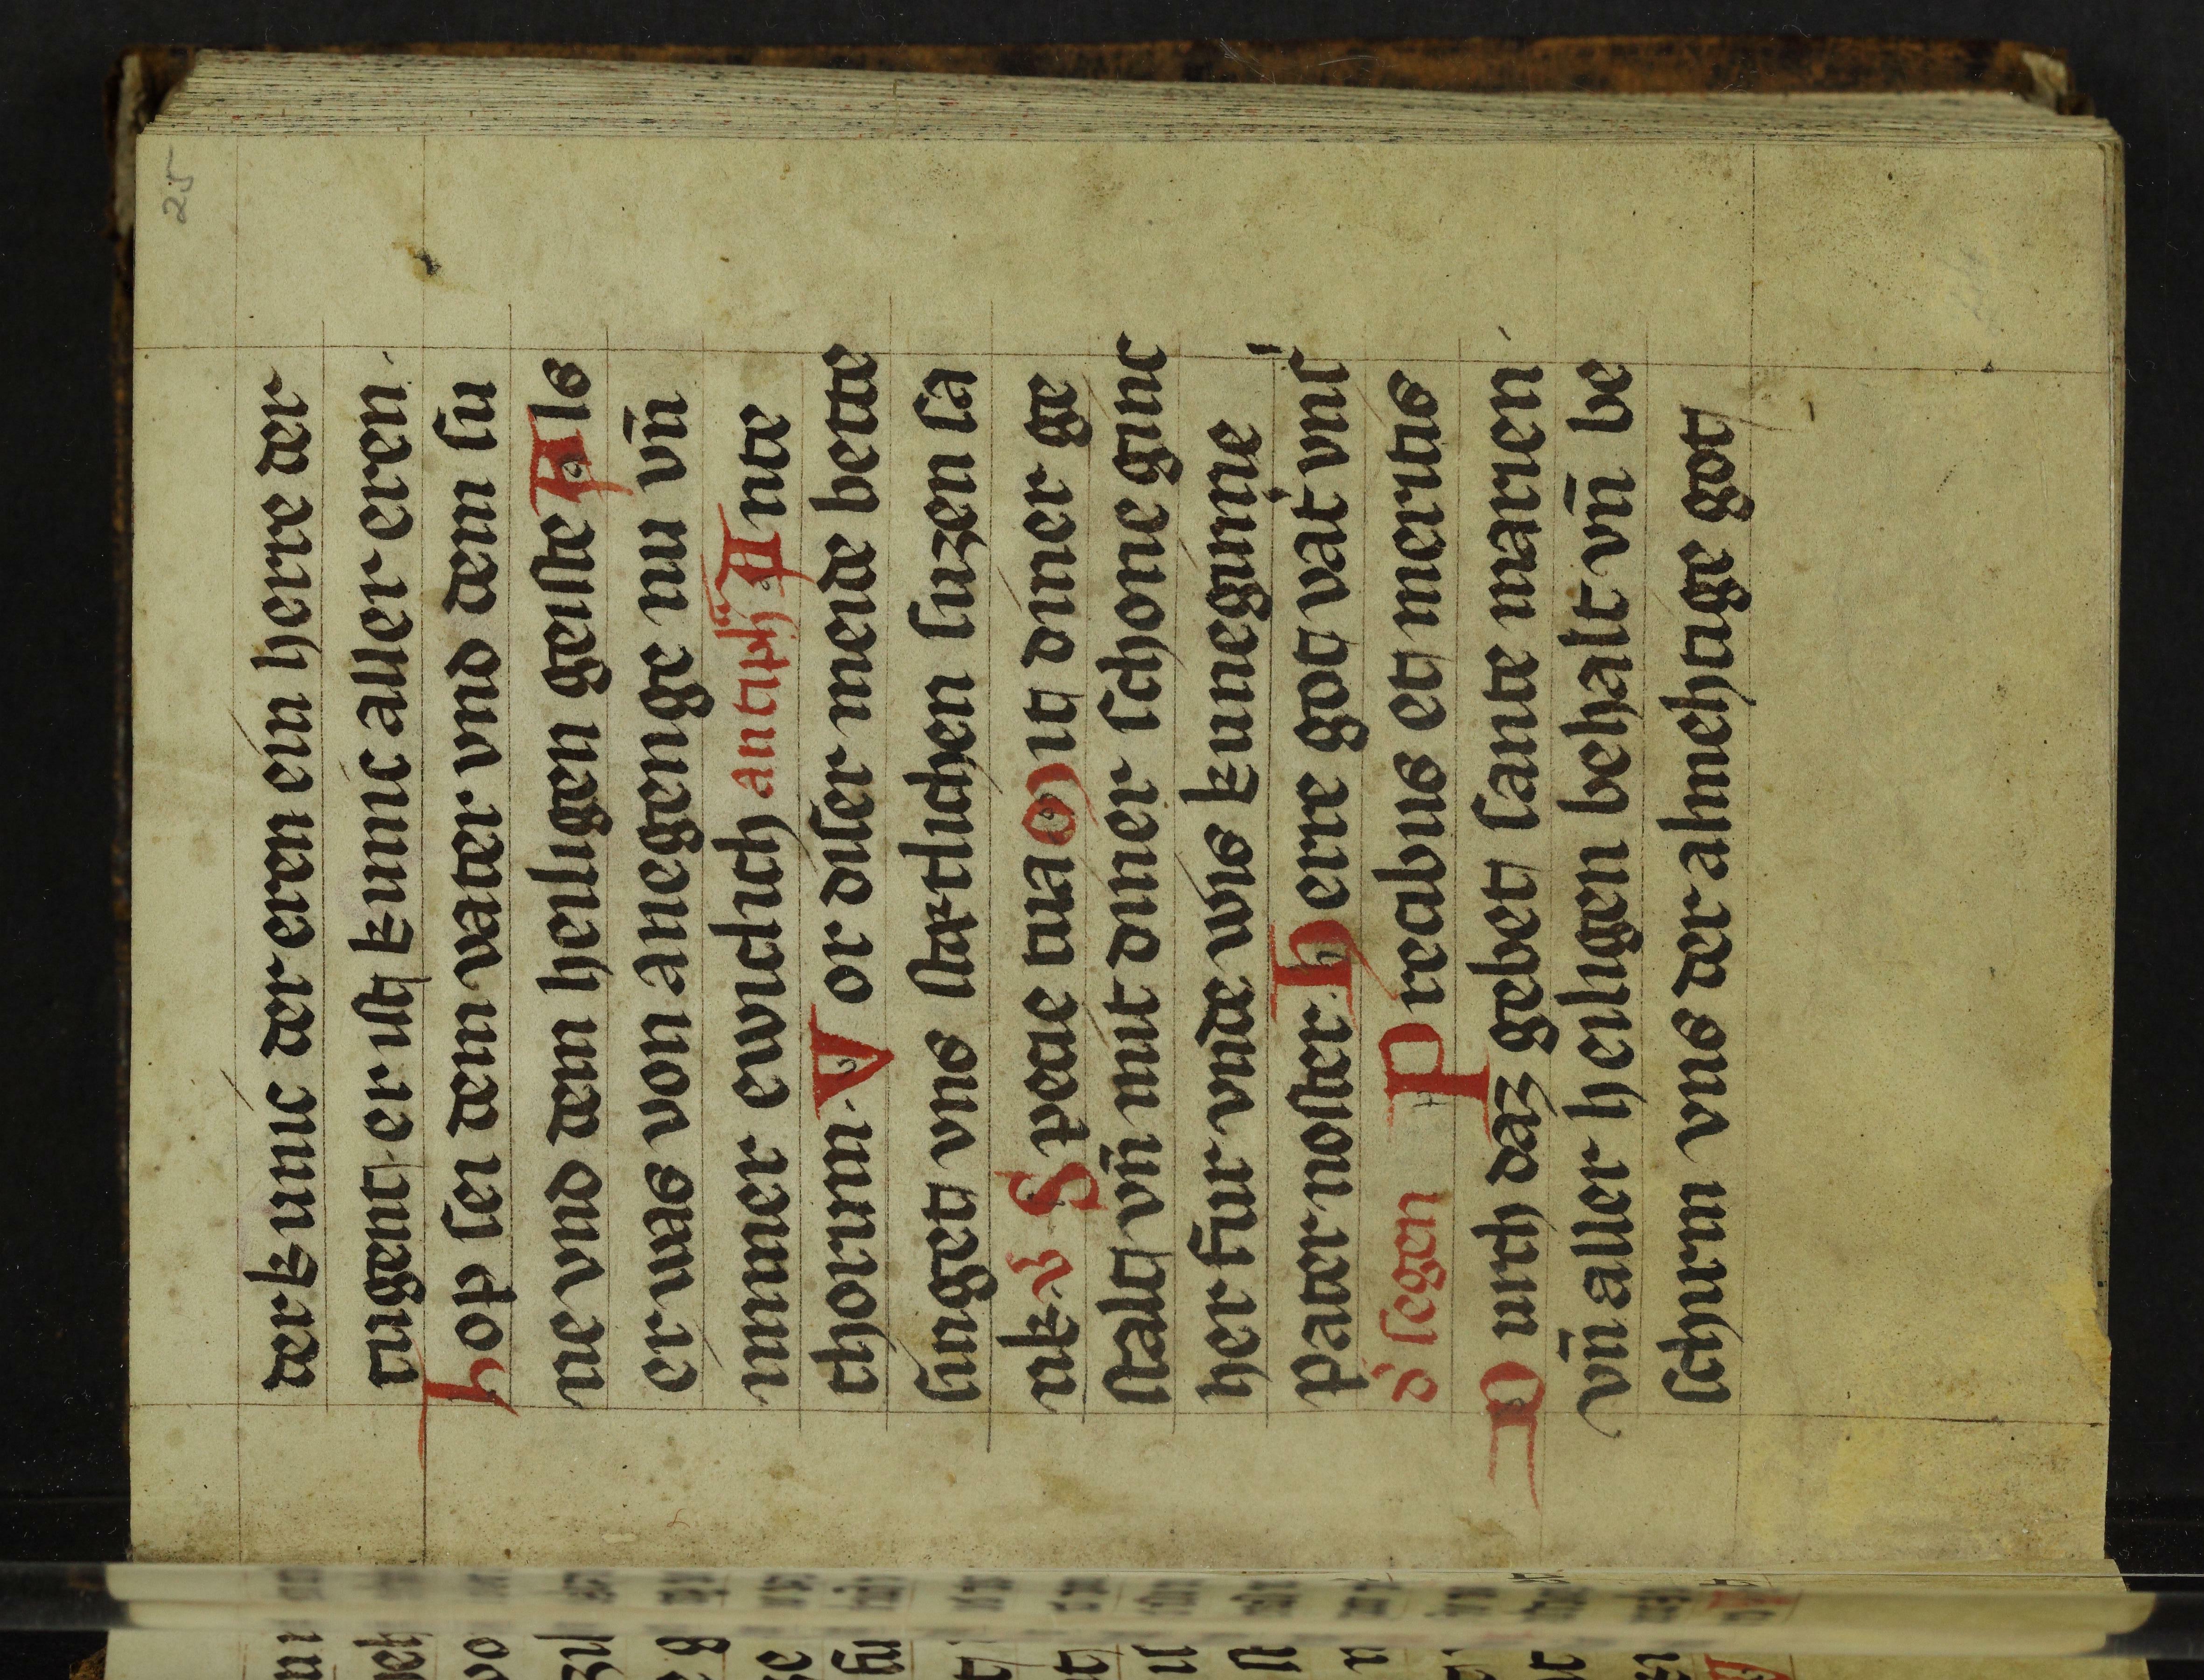 25
der kunic der eren ein herre der
tugent er istkunic aller eren.
Lop sei dem vater vnd dem su
ne vnd dem heiligen geiste Als
er was von anegenge nu vn̄
immer ewiclich antiph̄ Ante
thorum. Vor diser meide bette
singet vns startlichen suzen sa
nk. v̓ Specie tua Mit diner ge
stalt vn̄ mit diner schone ginc
her fur vnde wis kuneginne
pater noster. Herre got vat̓ vnſ
d̓ segen Precibus et meritis
Durch daz gebet sante marien.
vn̄ aller heiligen behalt vn̄ be
schirm vns der almehtige got